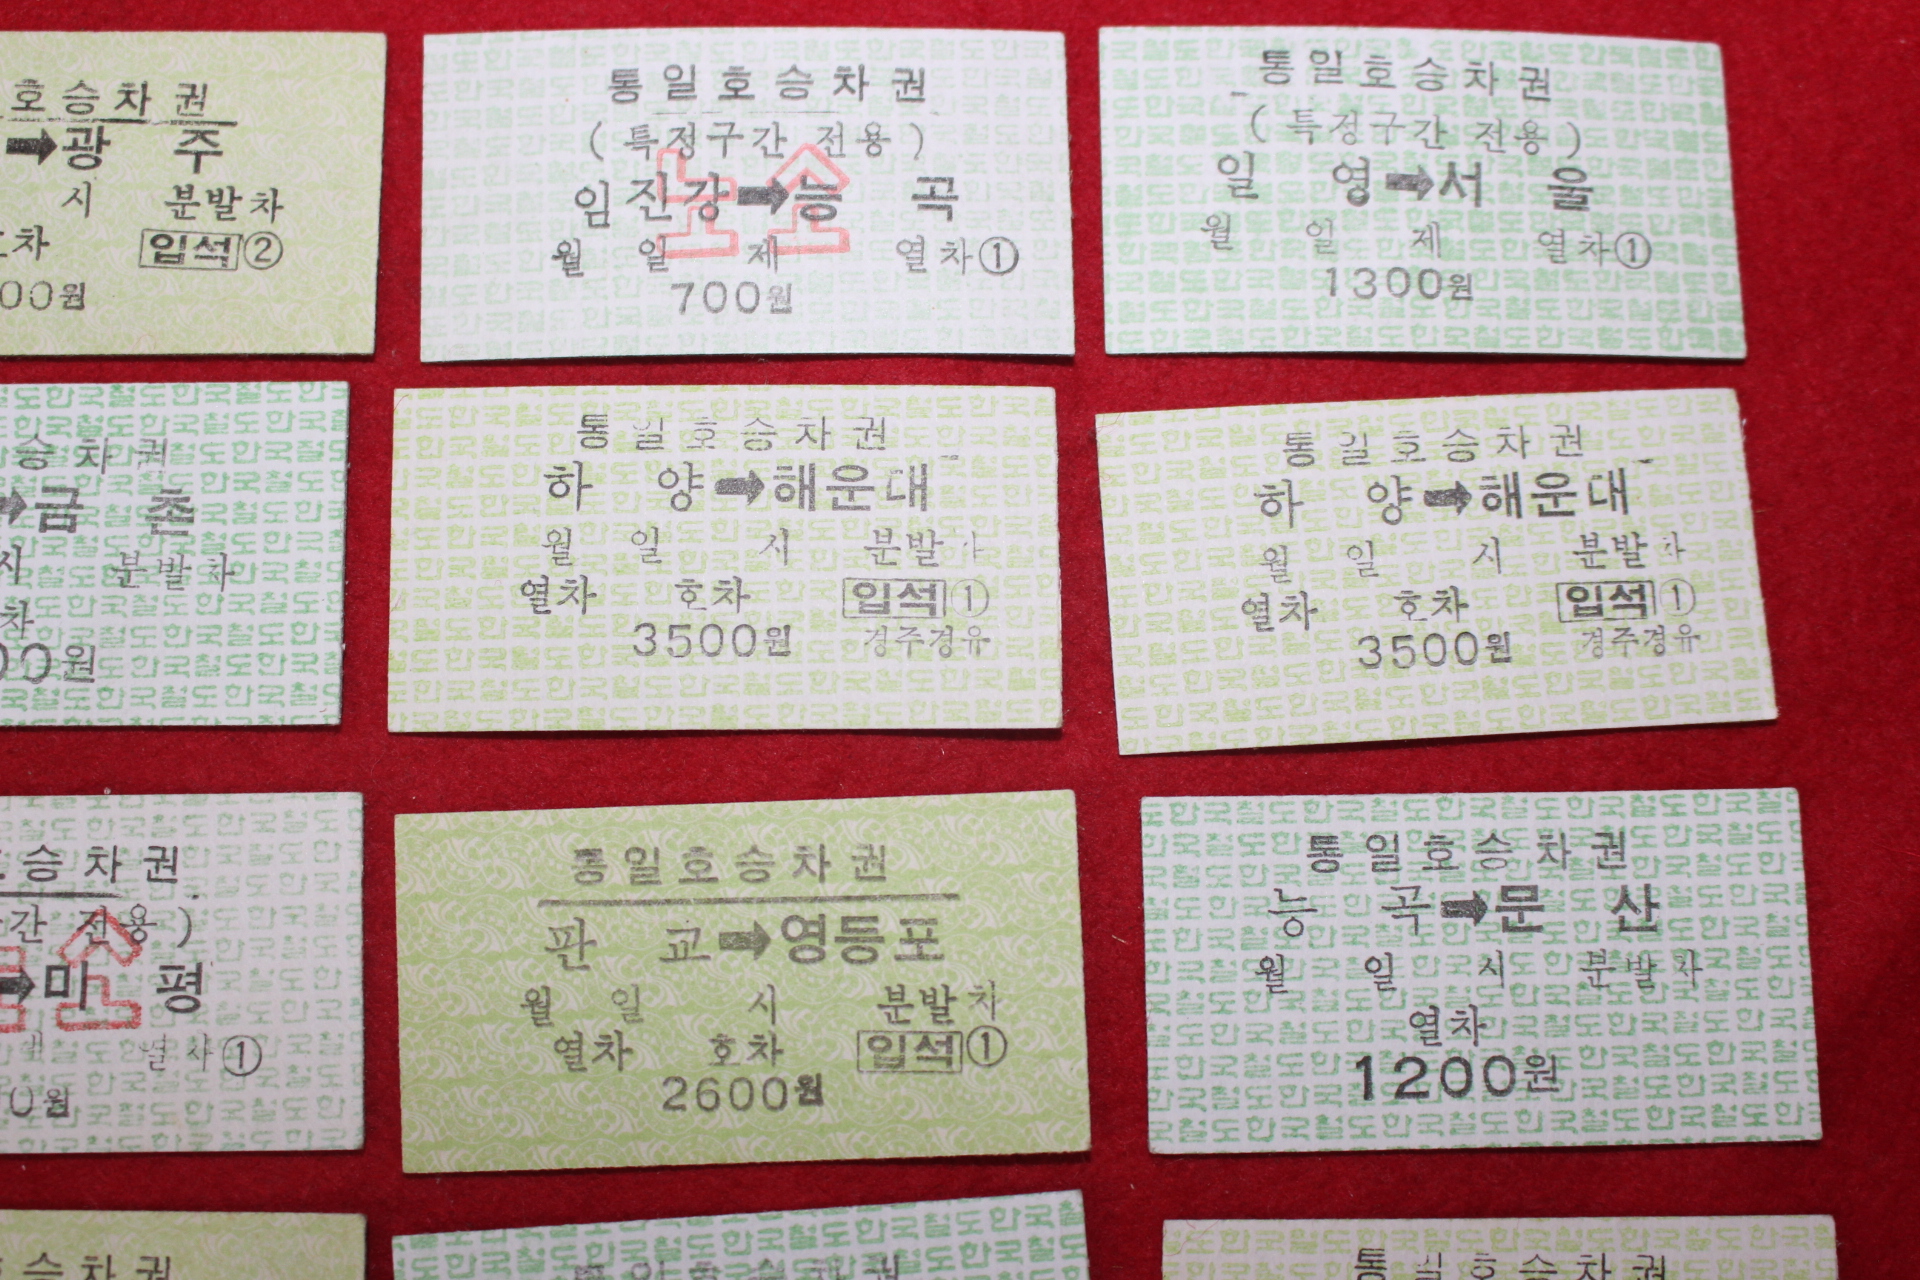 호승차권
➡광 주
시 분발차
호차 입석②
00원
통일호승차권
(특정구간 전용)
임진강➡능 곡
노 소
월 일 제 열차①
700원
통일호승차권
(특정구간 전용)
일 영➡서 울
월 일 제 열차①
1300원
승차권
➡금 촌
시 분발차
차
00원
통일호승차권
하 양➡해운대
월 일 시 분발차
열차 호차 입석①
3500원 경주경유
통일호승차권
하 양➡해운대
월 일 시 분발차
열차 호차 입석①
3500원 경주경유
호승차권
간 전용)
➡미 평
소
열차①
0원
통일호승차권
판 교➡영등포
월 일 시 분발차
열차 호차 입석①
2600원
통일호승차권
능 곡➡문 산
월 일 시 분발차
열차
1200원
호승차권
통일호승차권
통일호승차권